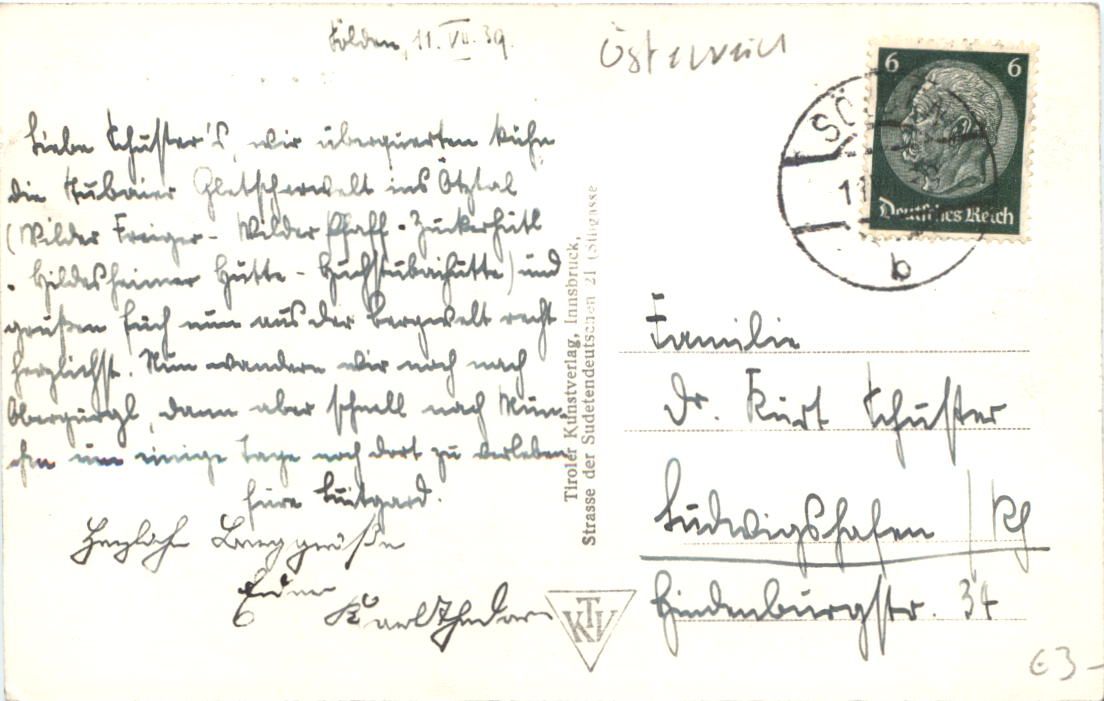 Sölden, 11. VII. 39.
Österreich
Liebe Schuster's, wir überquerten kühn
die Stubaier Gletscherwelt ins Ötztal
(Wilder Freiger - Wilder Pfaff - Zuckerhütl
- Hildesheimer Hütte - Hochstubaihütte) und
grüßen Euch nun aus der Bergwelt recht
herzlichst. Nun wandern wir noch nach
Obergurgl, dann aber schnell nach Mün-
chen um einige Tage noch dort zu verleben
Eure Luitgard.
Herzliche Berggrüße
Eidner
Karl Theodor
Tiroler Kunstverlag, Innsbruck,
Strasse der Sudetendeutschen 21 (Stilgasse
KTV
6 6
Deutsches Reich
SÖ
11
b
Familie
Dr. Kurt Schuster
Ludwigshafen / Rh
Hindenburgstr. 34
€3-